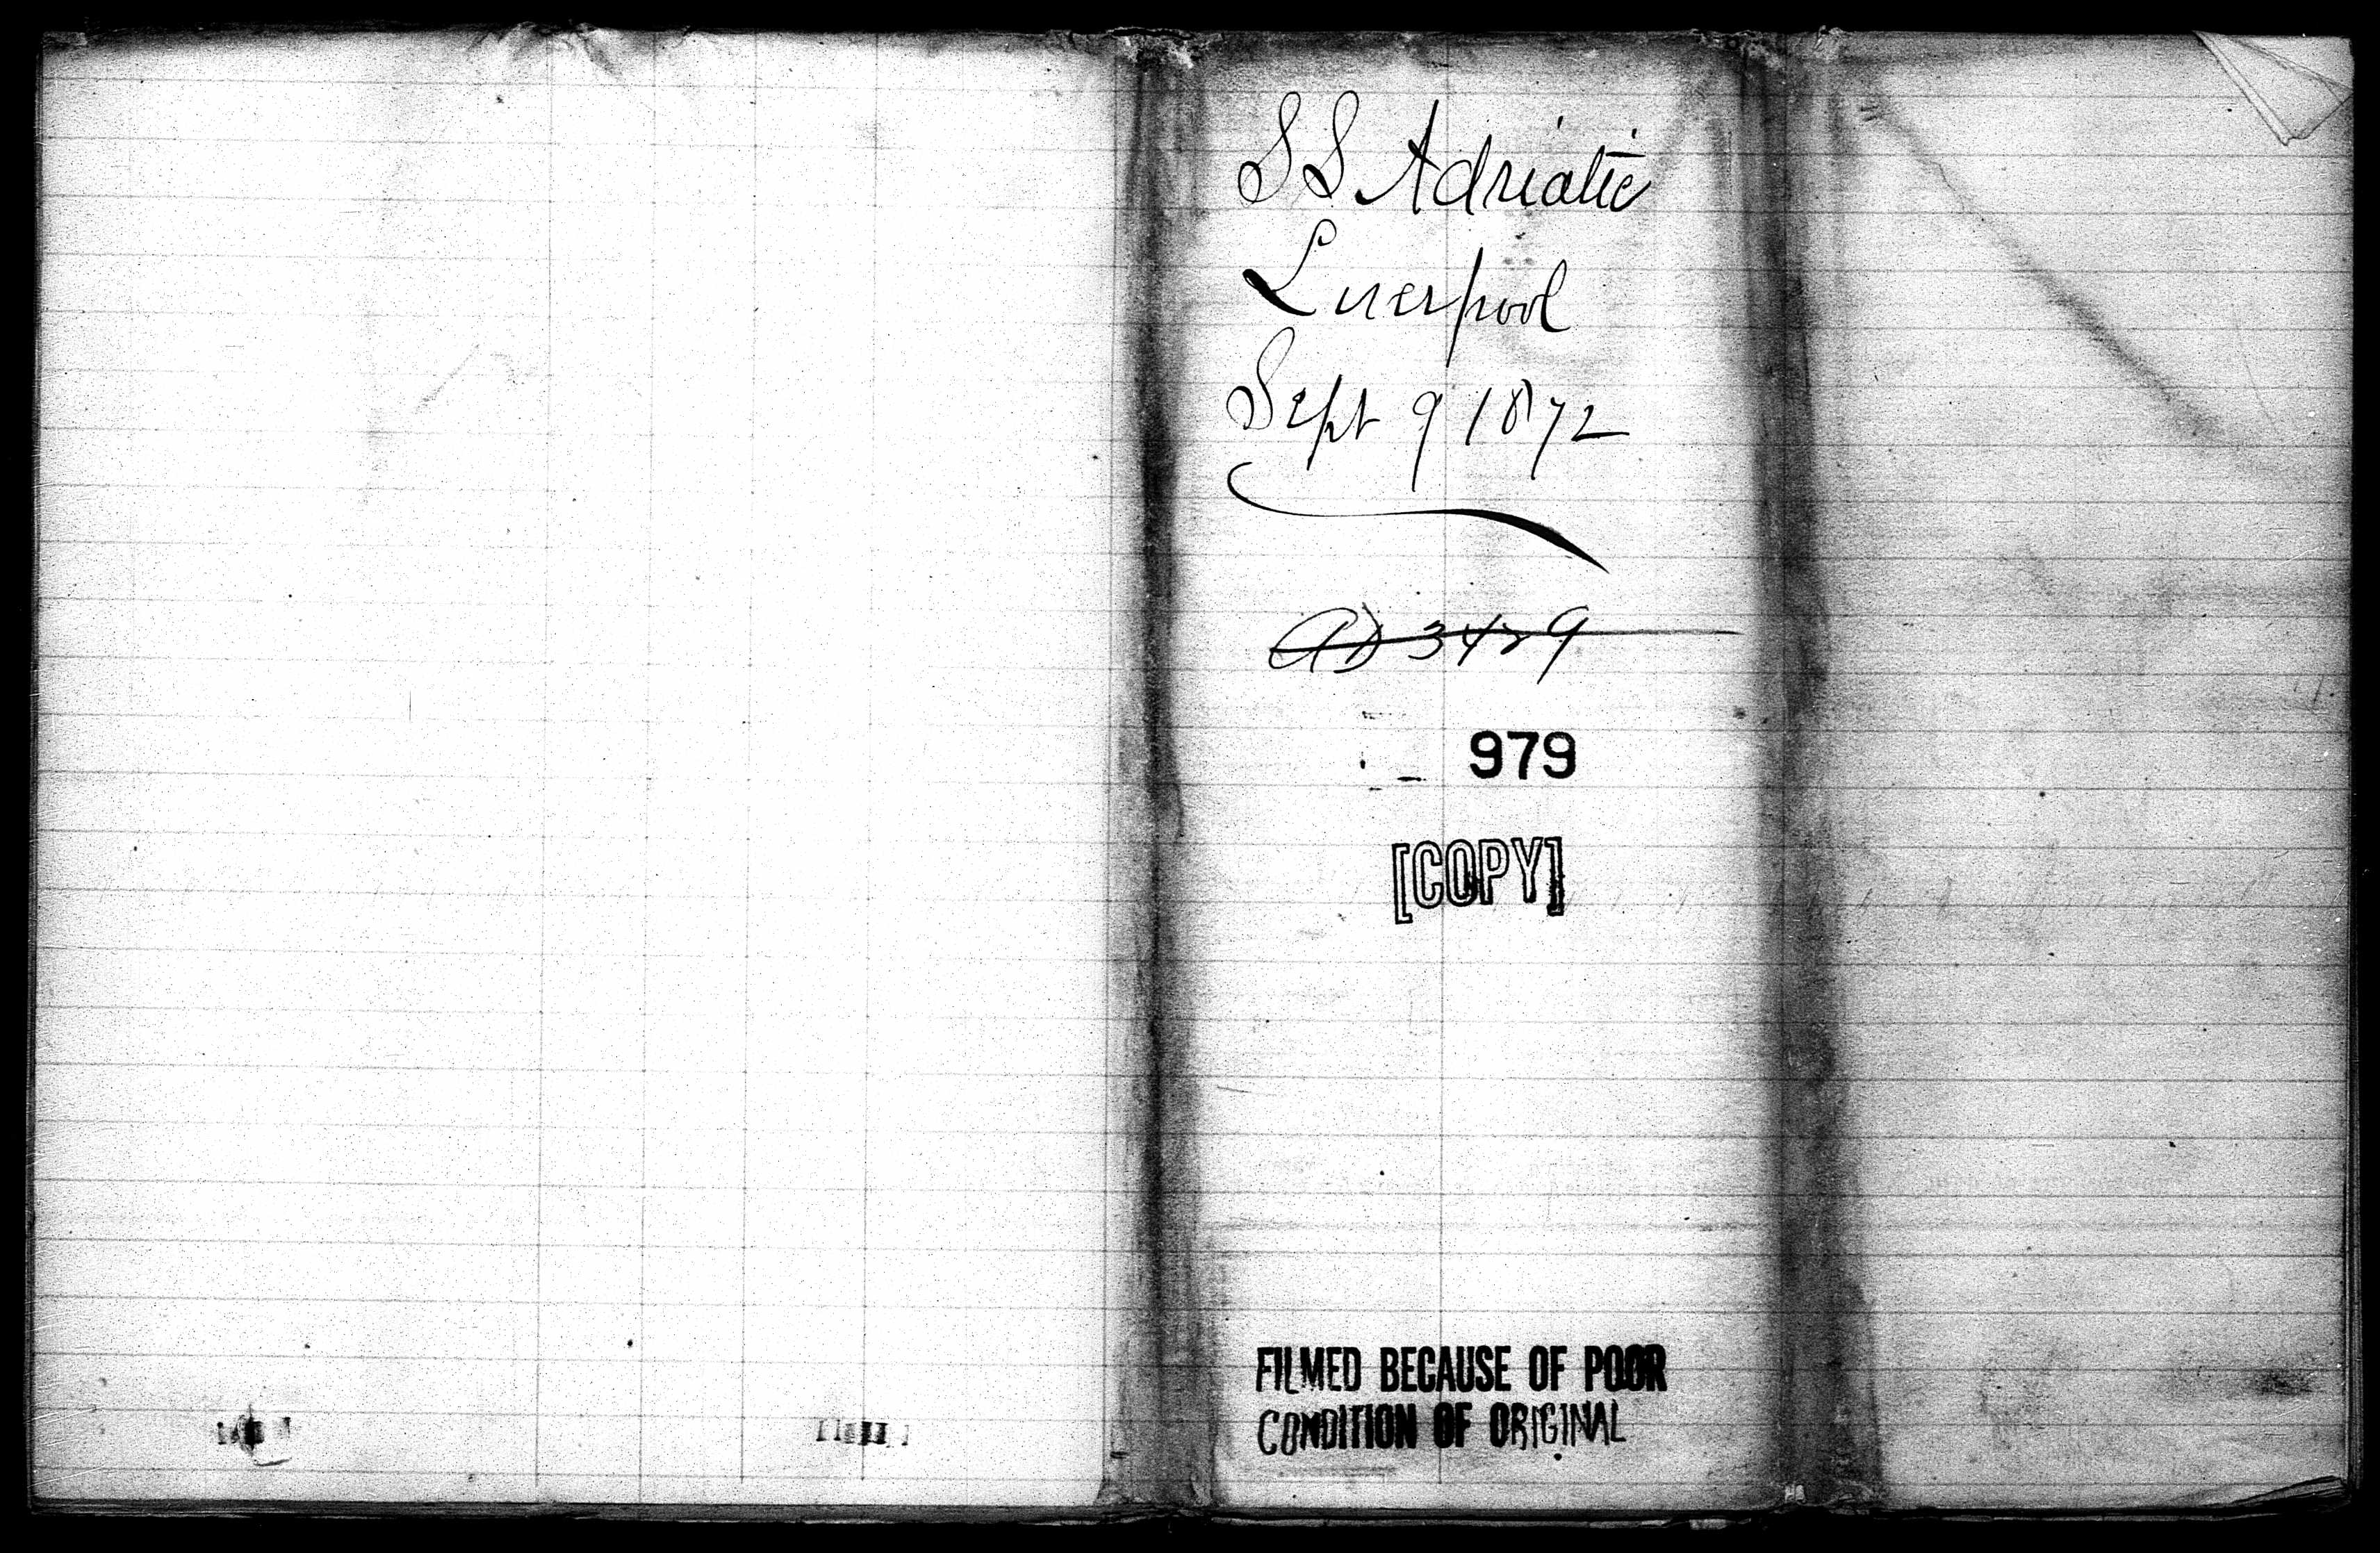 SS Adriatic
Liverpool
Sept 9 1872
979
[COPY]
FILMED BECAUSE OF POOR
CONDITION OF ORIGINAL